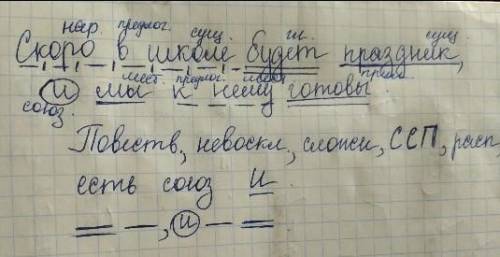 нар. предлог. сущ. гл. сущ.
Скоро в школе будет праздник,
мест. предлог. мест. прил.
И мы к нему готовы.
союз.
Повеств, невоскл, сложн, ССП, расп
есть союз И
, и